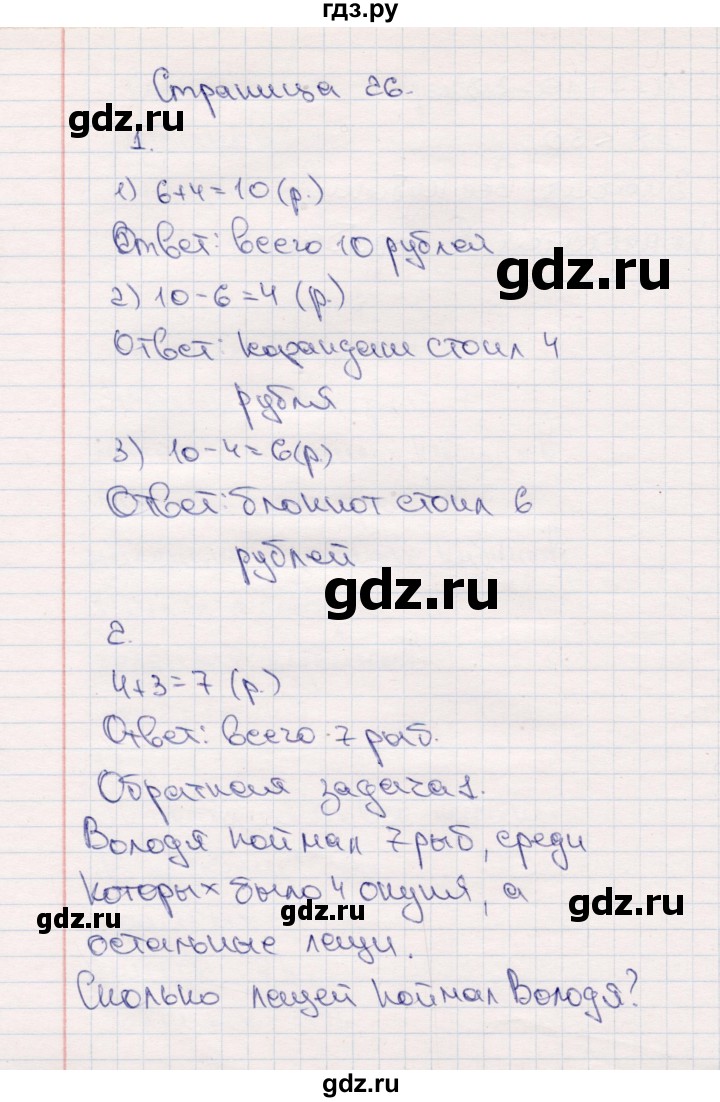 гдз.ру
Страница 26.
gdz.ru
1.
1) 6+4=10 (р.)
Ответ: всего 10 рублей
gdz.ru
2) 10-6=4 (р.)
Ответ: карандаш стоил 4
рубля
3) 10-4=6(р)
Ответ: блокнот стоил 6
рублей
gdz.ru
2.
4+3=7 (р.)
Ответ: всего 7 рыб.
Обратная задача 1.
Володя поймал 7 рыб, среди
которых было 4 окуня, а
gdz.ru gdz.ru gdz.ru
остальные лещи.
Сколько лещей поймал Володя?
gdz.ru